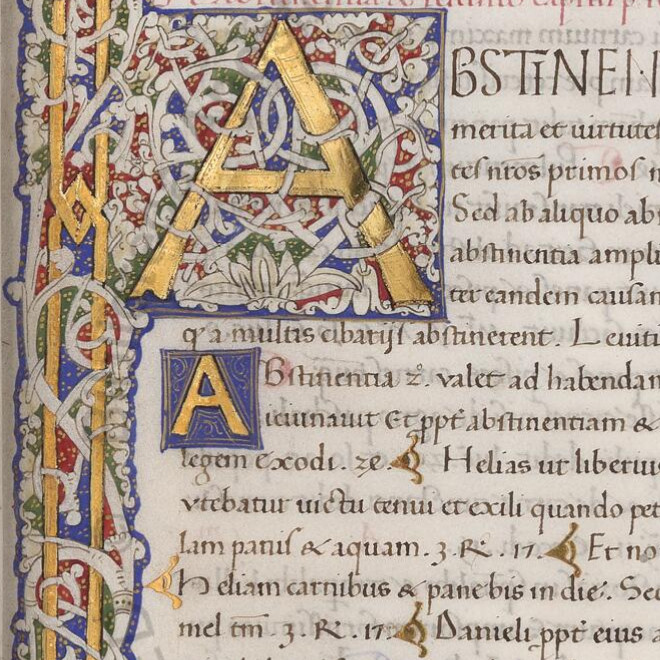 ABSTINEN
merita et uirtutes
ces nros primos
Sed ab aliquo ab
abstinentia ampli
ter eandem causam
q a multis cibarijs abstinerent. Leuiti
Abstinentia 2. ualet ad habendam
ieiunauit Et ppt abstinentiam &
legem Exodi. Helias ut liberius
vtebatur uictu tenui et exili quando pet
Iam panis & aquam. 3. R. 17. Et no
Heliam carnibus & pane bis in die. Sed
mel tm. 3. R. 17. Danieli ppt eius a